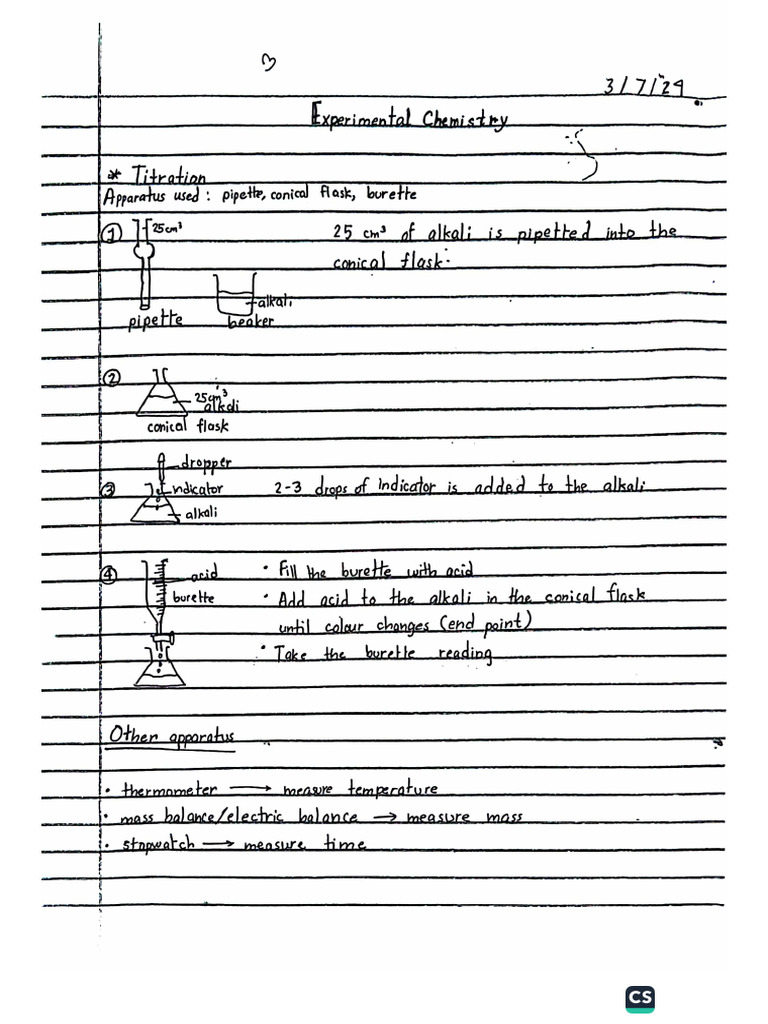 3/7/24
Experimental Chemistry
* Titration
Apparatus used : pipette, conical flask, burette
① 25cm³
25 cm³ of alkali is pipetted into the
conical flask.
alkali
pipette
beaker
②
25cm³
alkali
conical flask
dropper
③ indicator
2-3 drops of indicator is added to the alkali
alkali
④ acid
burette
• Fill the burette with acid
• Add acid to the alkali in the conical flask
until colour changes (end point)
• Take the burette reading
Other apparatus
• thermometer → measure temperature
• mass balance/electric balance → measure mass
• stopwatch → measure time
CS